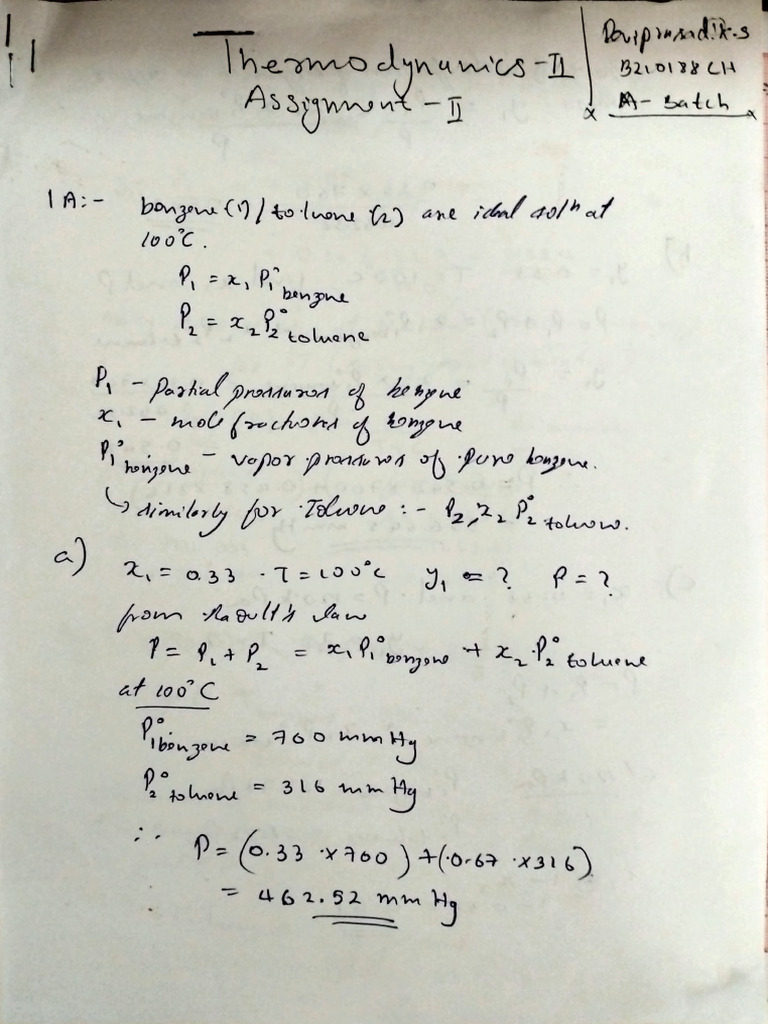 Thermodynamics-II
Assignment-II
B210188CH
A-Batch
1A:- benzene (1)/toluene (2) are ideal solⁿ at
100°C.
P₁ = x₁ P₁° benzene
P₂ = x₂ P₂° toluene
P₁ - Partial pressures of benzene
x₁ - mole fractions of benzene
P₁° benzene - vapor pressures of pure benzene.
↳ similarly for Toluene :- P₂, x₂ P₂° toluene.
a) x₁ = 0.33 . T = 100°C y₁ = ? P = ?
from Raoult's law
P = P₁ + P₂ = x₁ P₁° benzene + x₂ . P₂° toluene
at 100°C
P₁° benzene = 700 mm Hg
P₂° toluene = 316 mm Hg
∴ P = (0.33 × 700) + (0.67 × 316)
= 462.52 mm Hg